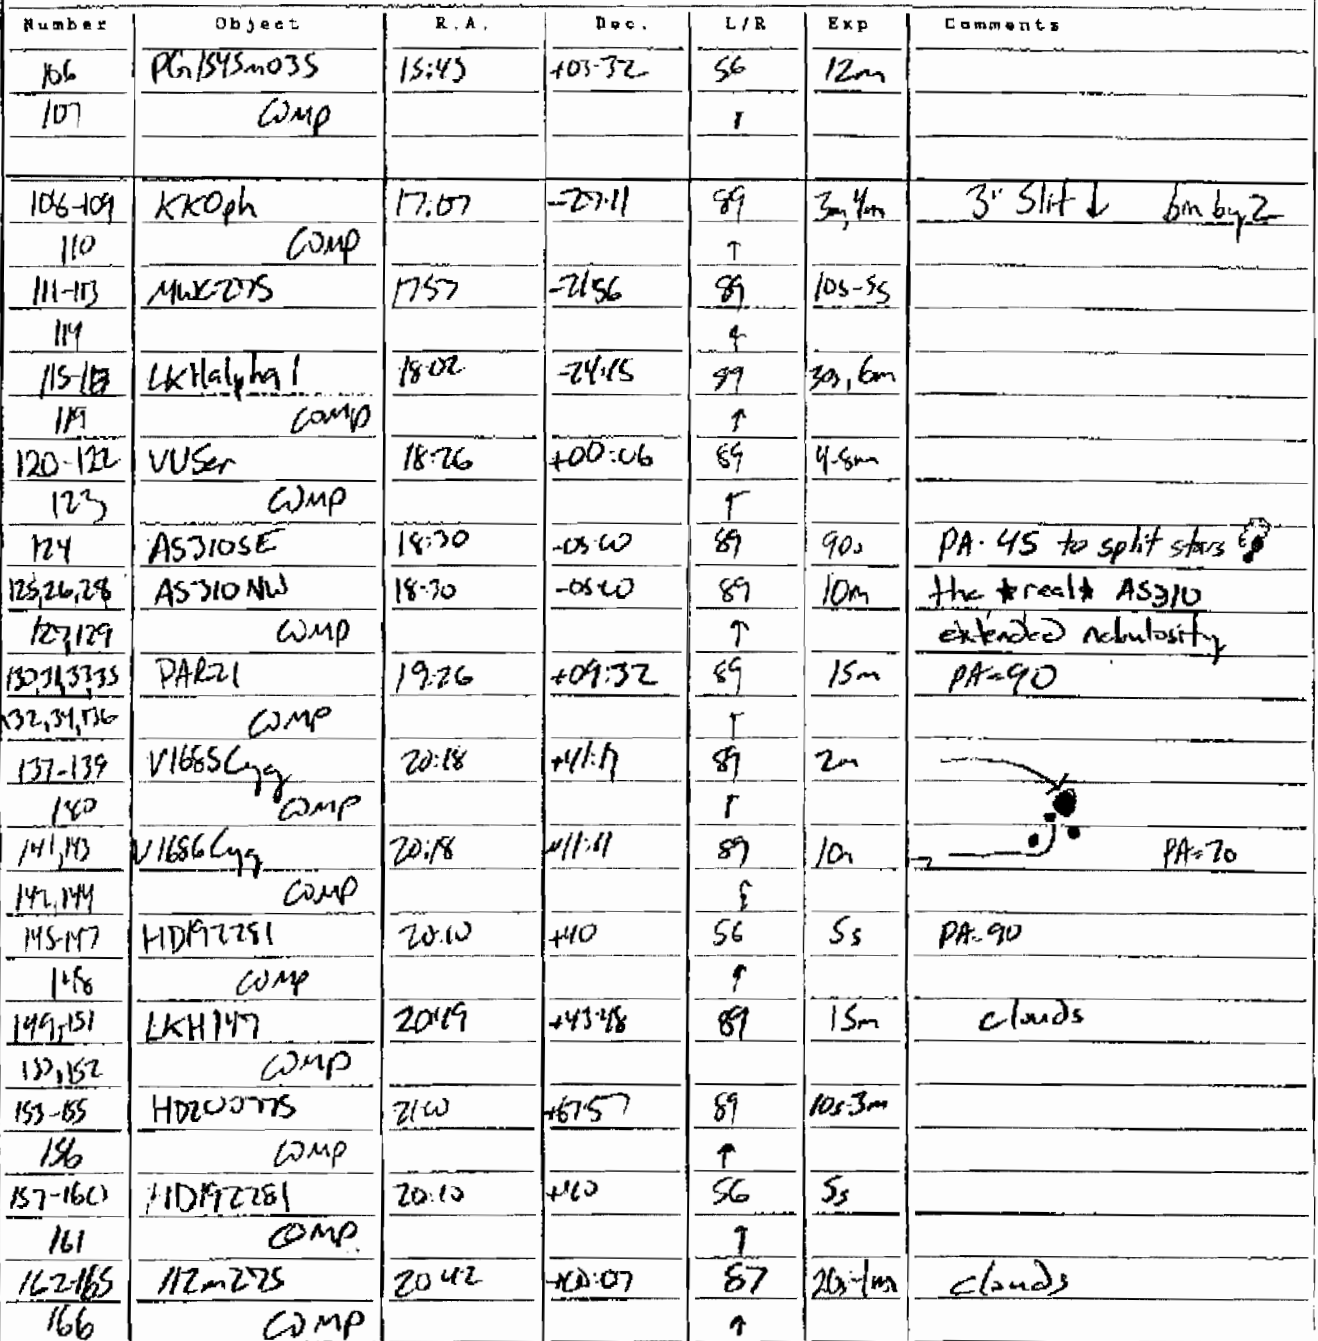 Number Object R.A. Dec. L/R Exp Comments
106 PG1545m035 15:45 +03:32 56 12m
107 COMP
108-109 KKOph 17:07 -27:11 89 3m, 4m 3" Slit ↓ bin by 2
110 COMP ↑
111-113 MWC275 1757 -2156 89 10s-5s
114 ↑
115-118 LKHalpha1 18:02 -24:15 89 30s, 6m
119 COMP ↑
120-122 VVSer 18:26 +00:06 89 4-8m
123 COMP ↑
124 AS310SE 18:30 -05:00 89 90s PA=45 to split stars
125,26,28 AS310NW 18:30 -05:00 89 10m the *real* AS310
127,129 COMP ↑ extended nebulosity
130,31,33,35 PAR21 19:26 +09:32 89 15m PA=90
132,34,136 COMP ↑
137-139 V1685Cyg 20:18 +41:11 89 2m
140 COMP ↑
141,143 V1686Cyg 20:18 89 PA=70
142,144 COMP
145-147 HD192281 20:10 +40 56 5s PA=90
148 COMP ↑
149,151 LKH147 20:49 +43:48 89 15m clouds
150,152 COMP
153-155 HD200775 21:00 +67:57 89 10s-3m
156 COMP ↑
157-160 HD192281 20:10 +40 56 5s
161 COMP ↑
162-165 20 42 87 20s-1m clouds
166 COMP ↑